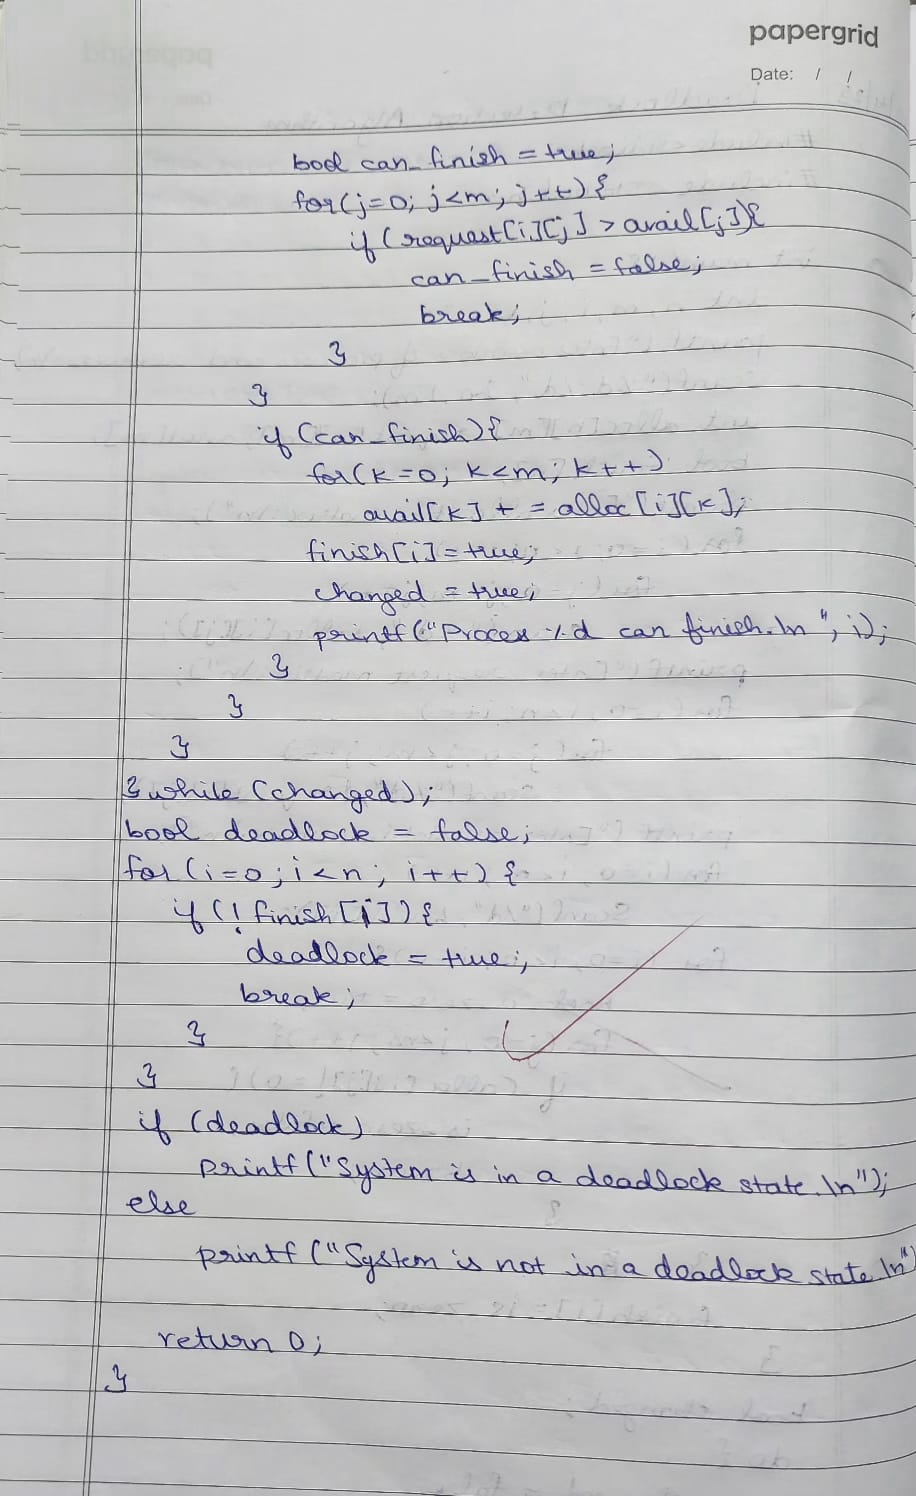 papergrid
Date: / /
bool can_finish = true;
for(j=0; j<m; j++){
if (request[i][j] > avail[j]){
can_finish = false;
break;
}
}
if (can_finish){
for(k=0; k<m; k++)
avail[k] + = alloc[i][k];
finish[i]=true;
changed = true;
printf("Process %d can finish.\n", i);
}
}
}
} while (changed);
bool deadlock = false;
for(i=0; i<n; i++) {
if (! finish[i]) {
deadlock = true;
break;
}
}
if (deadlock)
printf("System is in a deadlock state.\n");
else
printf("System is not in a deadlock state.\n")
return 0;
}